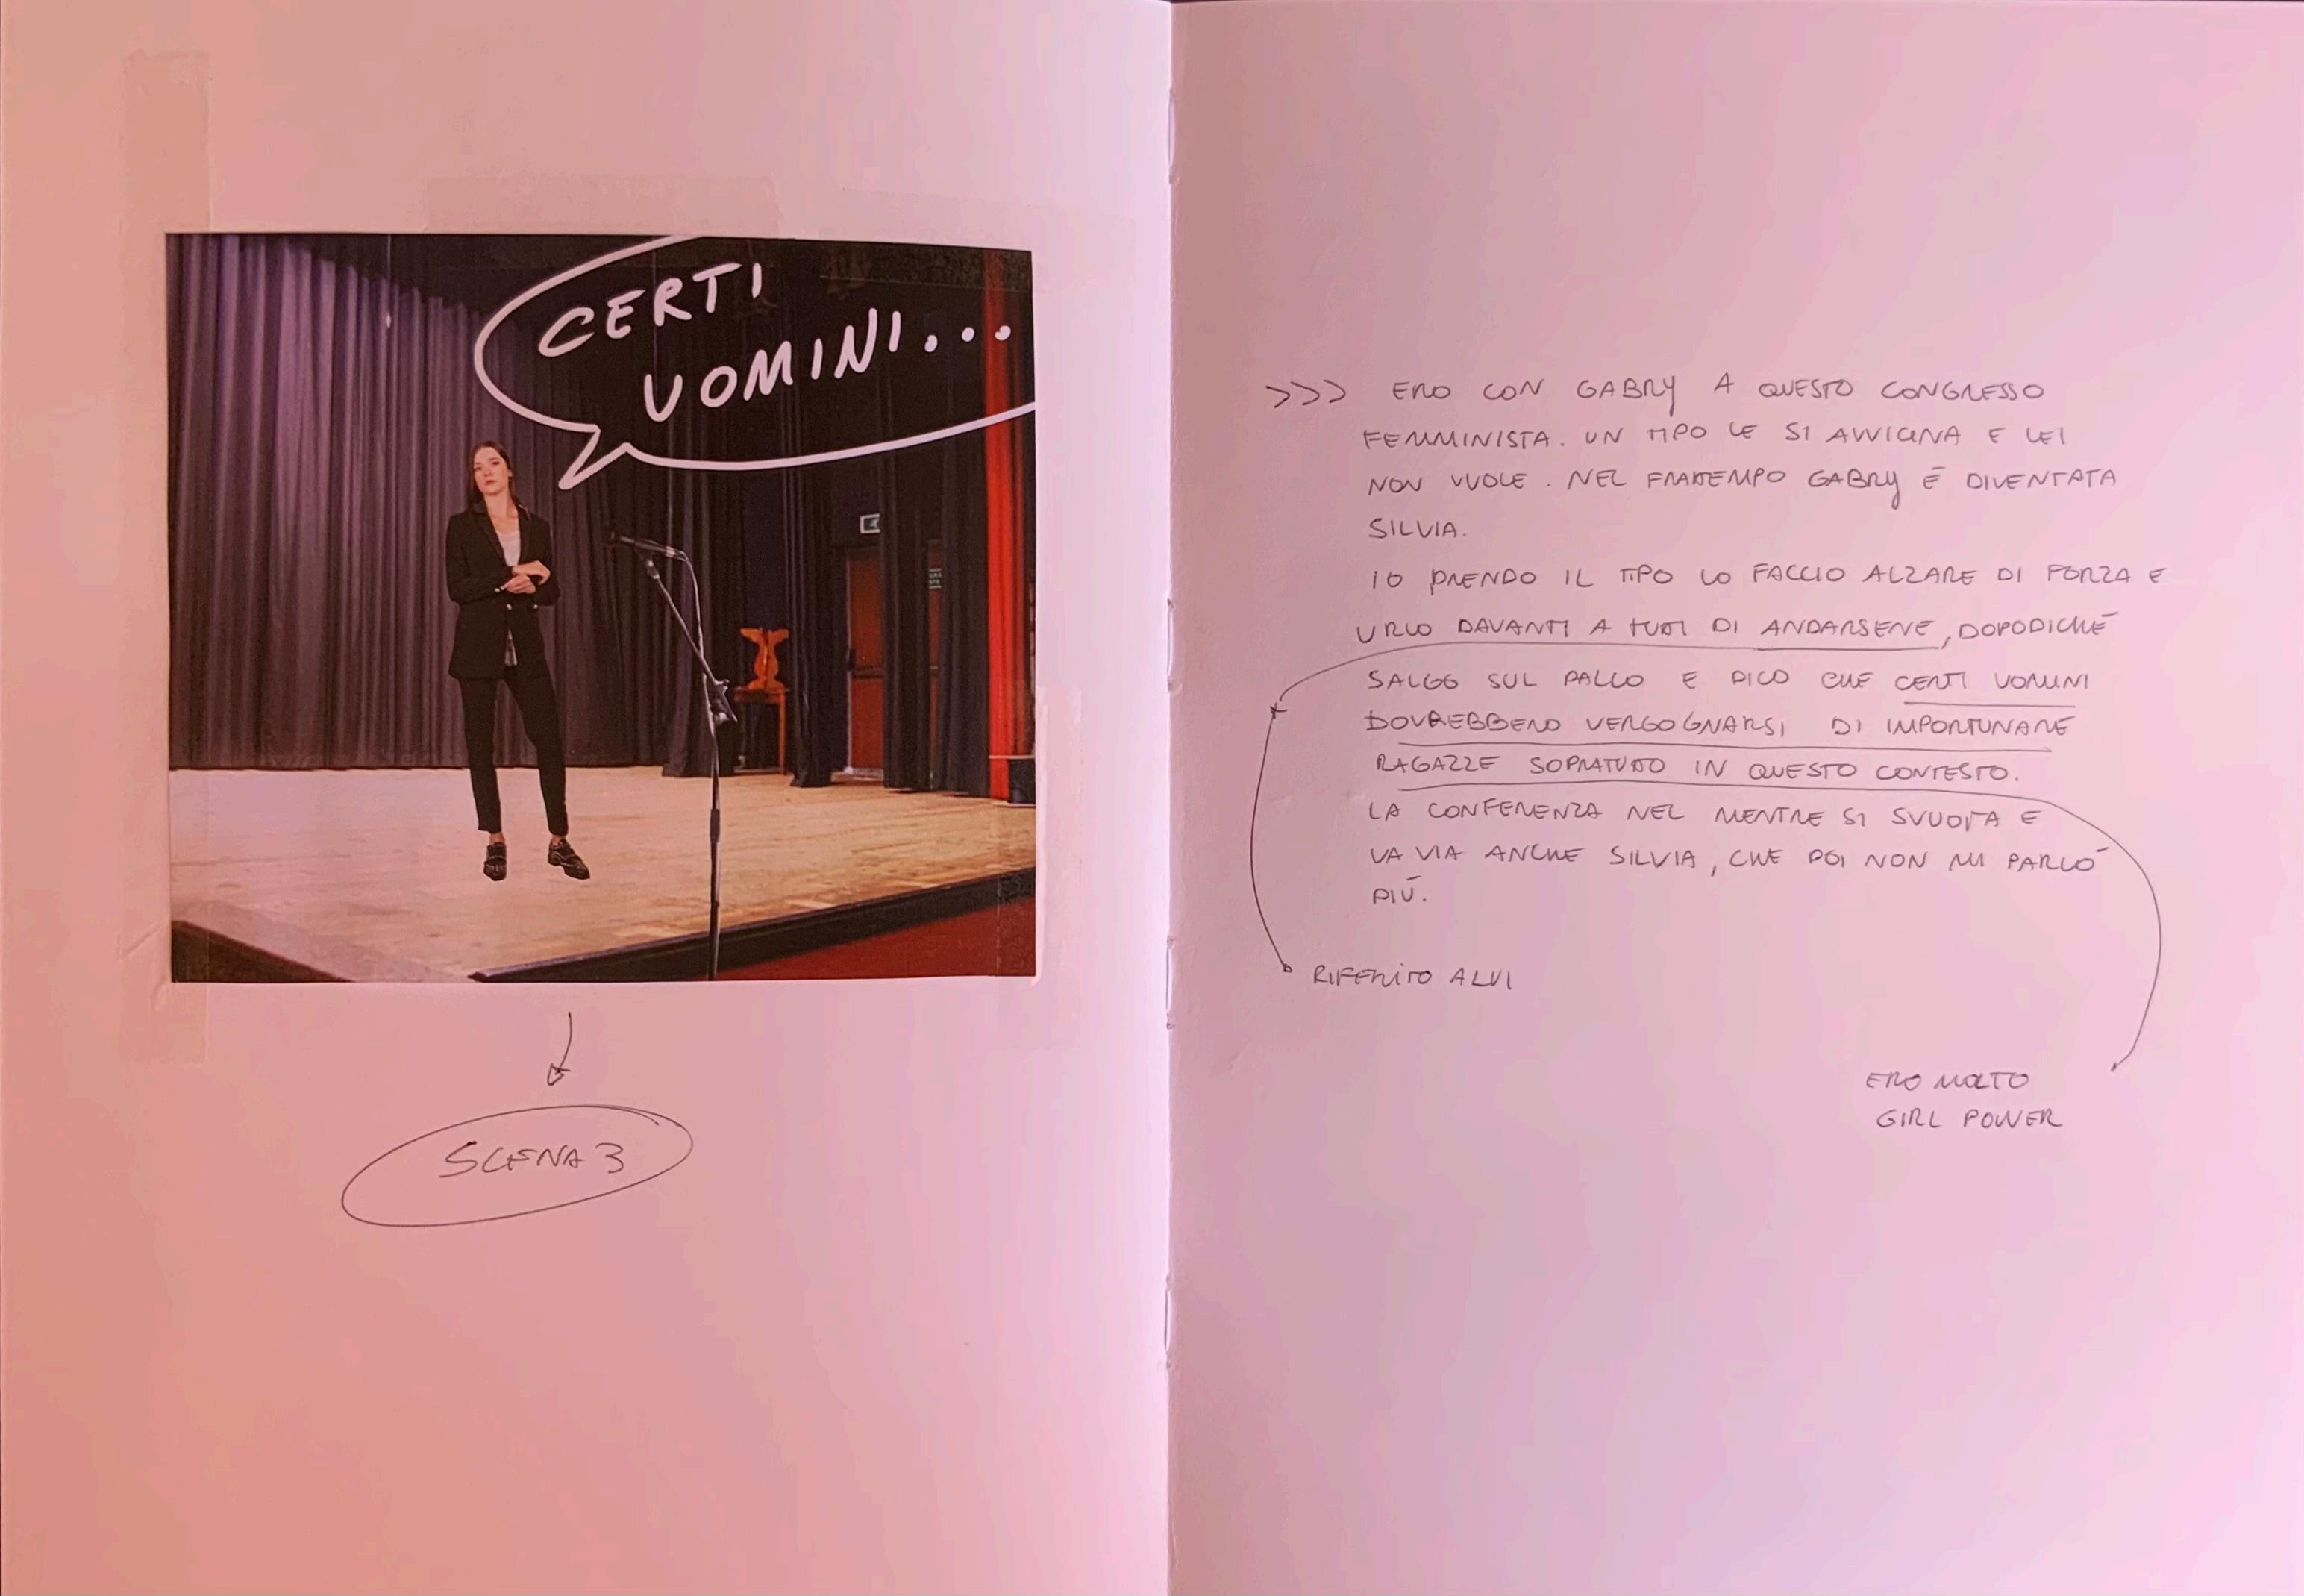 CERTI
UOMINI...
SCENA 3
>>> ERO CON GABRY A QUESTO CONGRESSO
FEMMINISTA. UN TIPO LE SI AVVICINA E LEI
NON VUOLE. NEL FRATTEMPO GABRY È DIVENTATA
SILVIA.
IO PRENDO IL TIPO LO FACCIO ALZARE DI FORZA E
URLO DAVANTI A TUTTI DI ANDARSENE, DOPODICHÉ
SALGO SUL PALCO E DICO CHE CERTI UOMINI
DOVREBBERO VERGOGNARSI DI IMPORTUNARE
RAGAZZE SOPRATUTTO IN QUESTO CONTESTO.
LA CONFERENZA NEL MENTRE SI SVUOTA E
VA VIA ANCHE SILVIA, CHE POI NON MI PARLÒ
PIÙ.
RIFERITO A LUI
ERO MOLTO
GIRL POWER